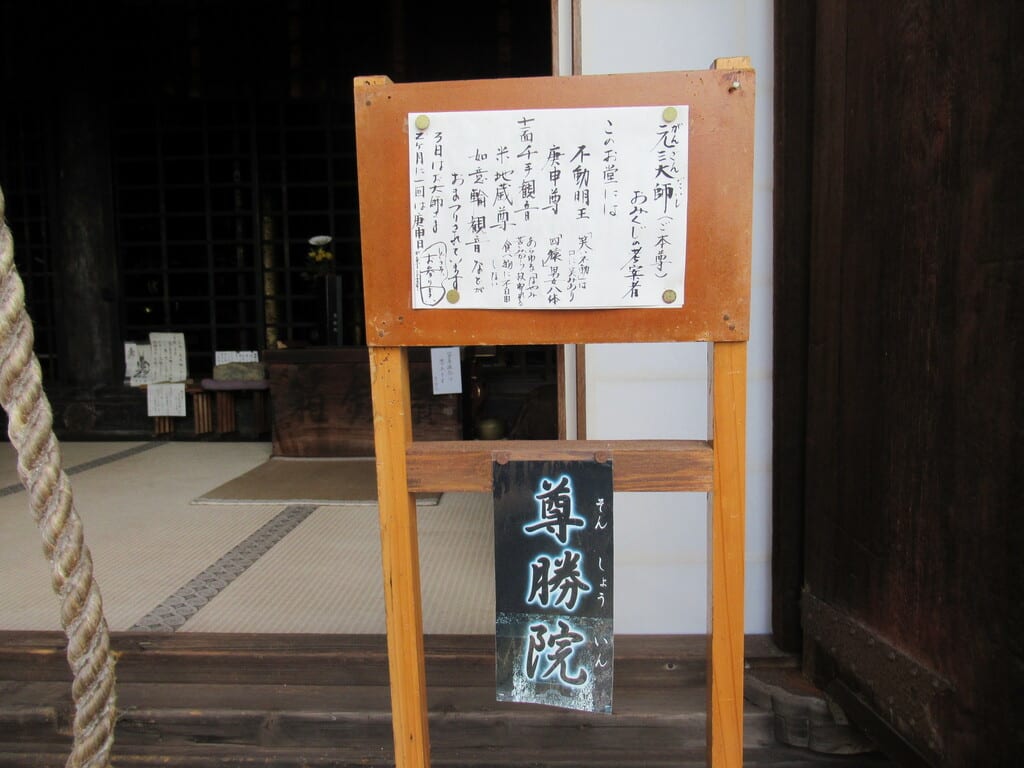 がんさんだいし
元三大師(ご本尊)
おみくじの考案者
このお堂には
不動明王 「笑い不動」は
口に笑みあり
庚申尊 「四猿」男女八体
十一面千手観音 あらゆるなやみ
苦しみから救われる
米地蔵尊 食べ物に不自由
しない
如意輪観音などが
おまつりされています
3日はお大師さま
2ヶ月に一回は庚申日
お参り
尊勝院
そんしょういん